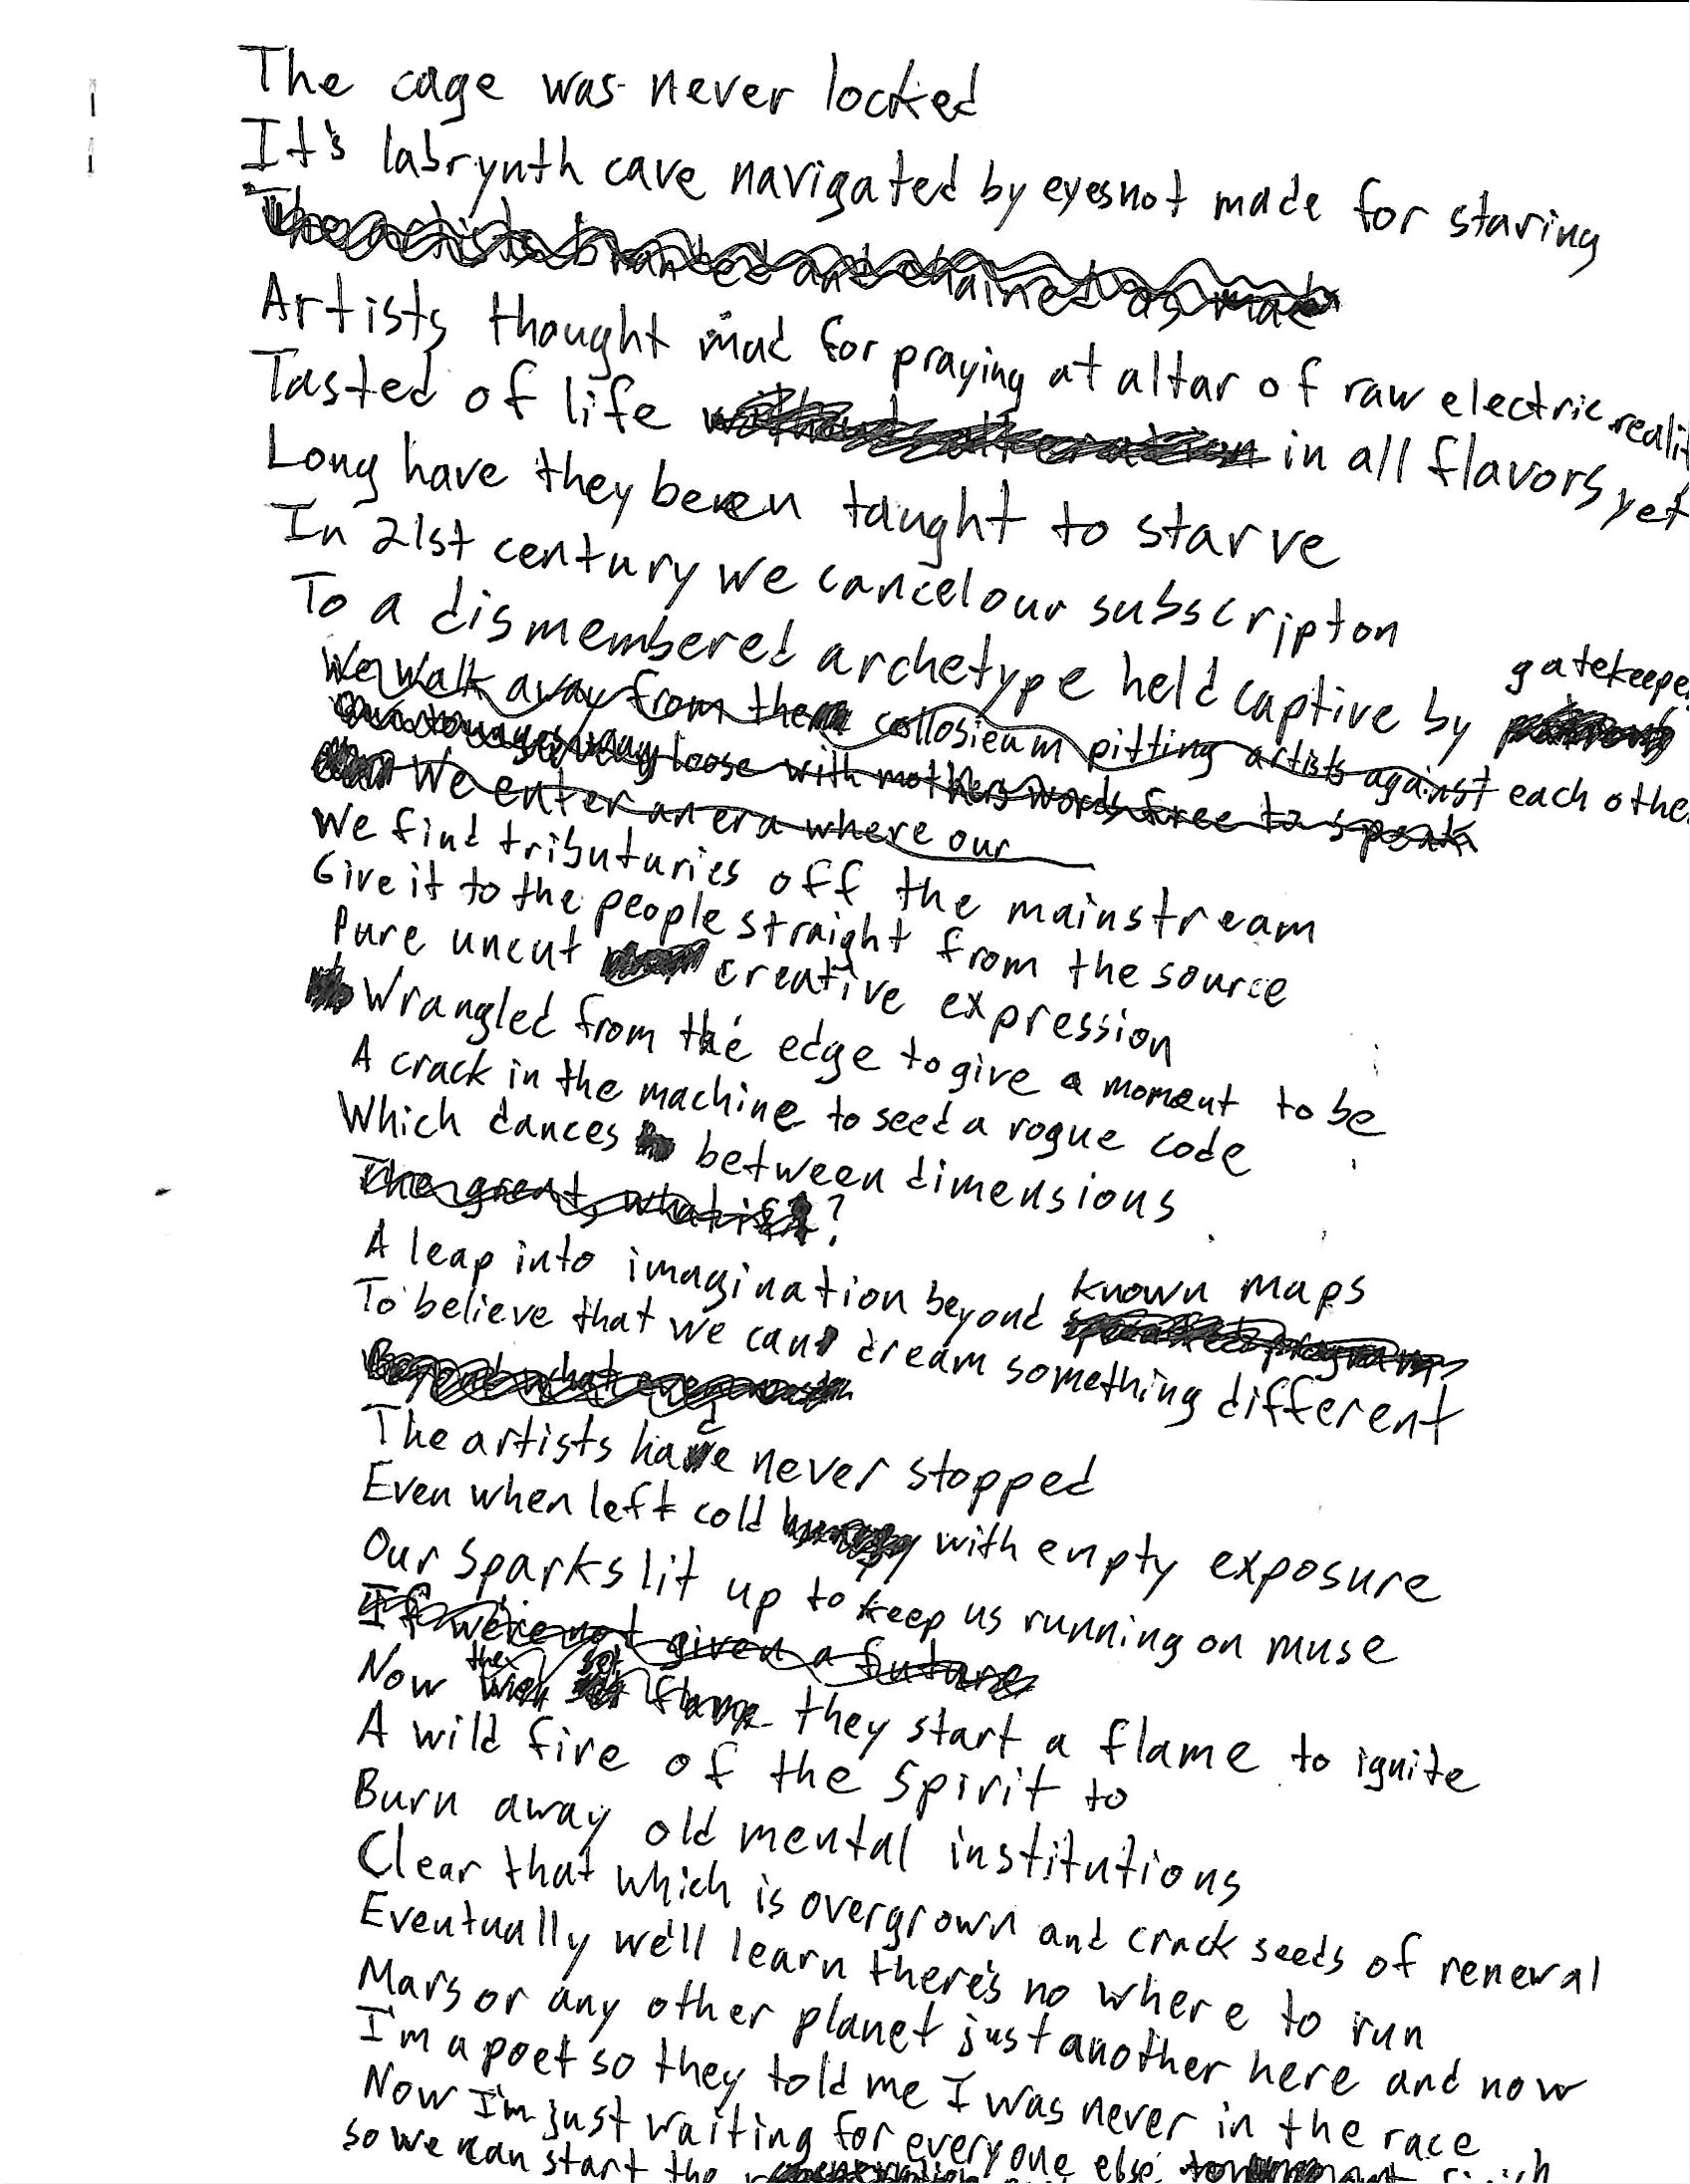 The cage was never locked
It's labrynth cave navigated by eyes not made for staring
The artists branded and chained as mad
Artists thought mad for praying at altar of raw electric realit
Tasted of life without alteration in all flavors yet
Long have they been taught to starve
In 21st century we cancel our subscripton
To a dismembered archetype held captive by gatekeepe
We walk away from the collosieum pitting artists against each othe
loose with mothers words free to speak
We enter an era where our
We find tributaries off the mainstream
Give it to the people straight from the source
Pure uncut creative expression
Wrangled from the edge to give a moment to be
A crack in the machine to seed a rogue code
Which dances between dimensions
The great what if?
A leap into imagination beyond known maps
To believe that we can dream something different
The artists had never stopped
Even when left cold hungry with empty exposure
Our sparks lit up to keep us running on muse
If we're not given a future
Now they start a flame to ignite
A wild fire of the spirit to
Burn away old mental institutions
Clear that which is overgrown and crack seeds of renewal
Eventually we'll learn there's no where to run
Mars or any other planet just another here and now
I'm a poet so they told me I was never in the race
Now I'm just waiting for everyone else
so we can start the